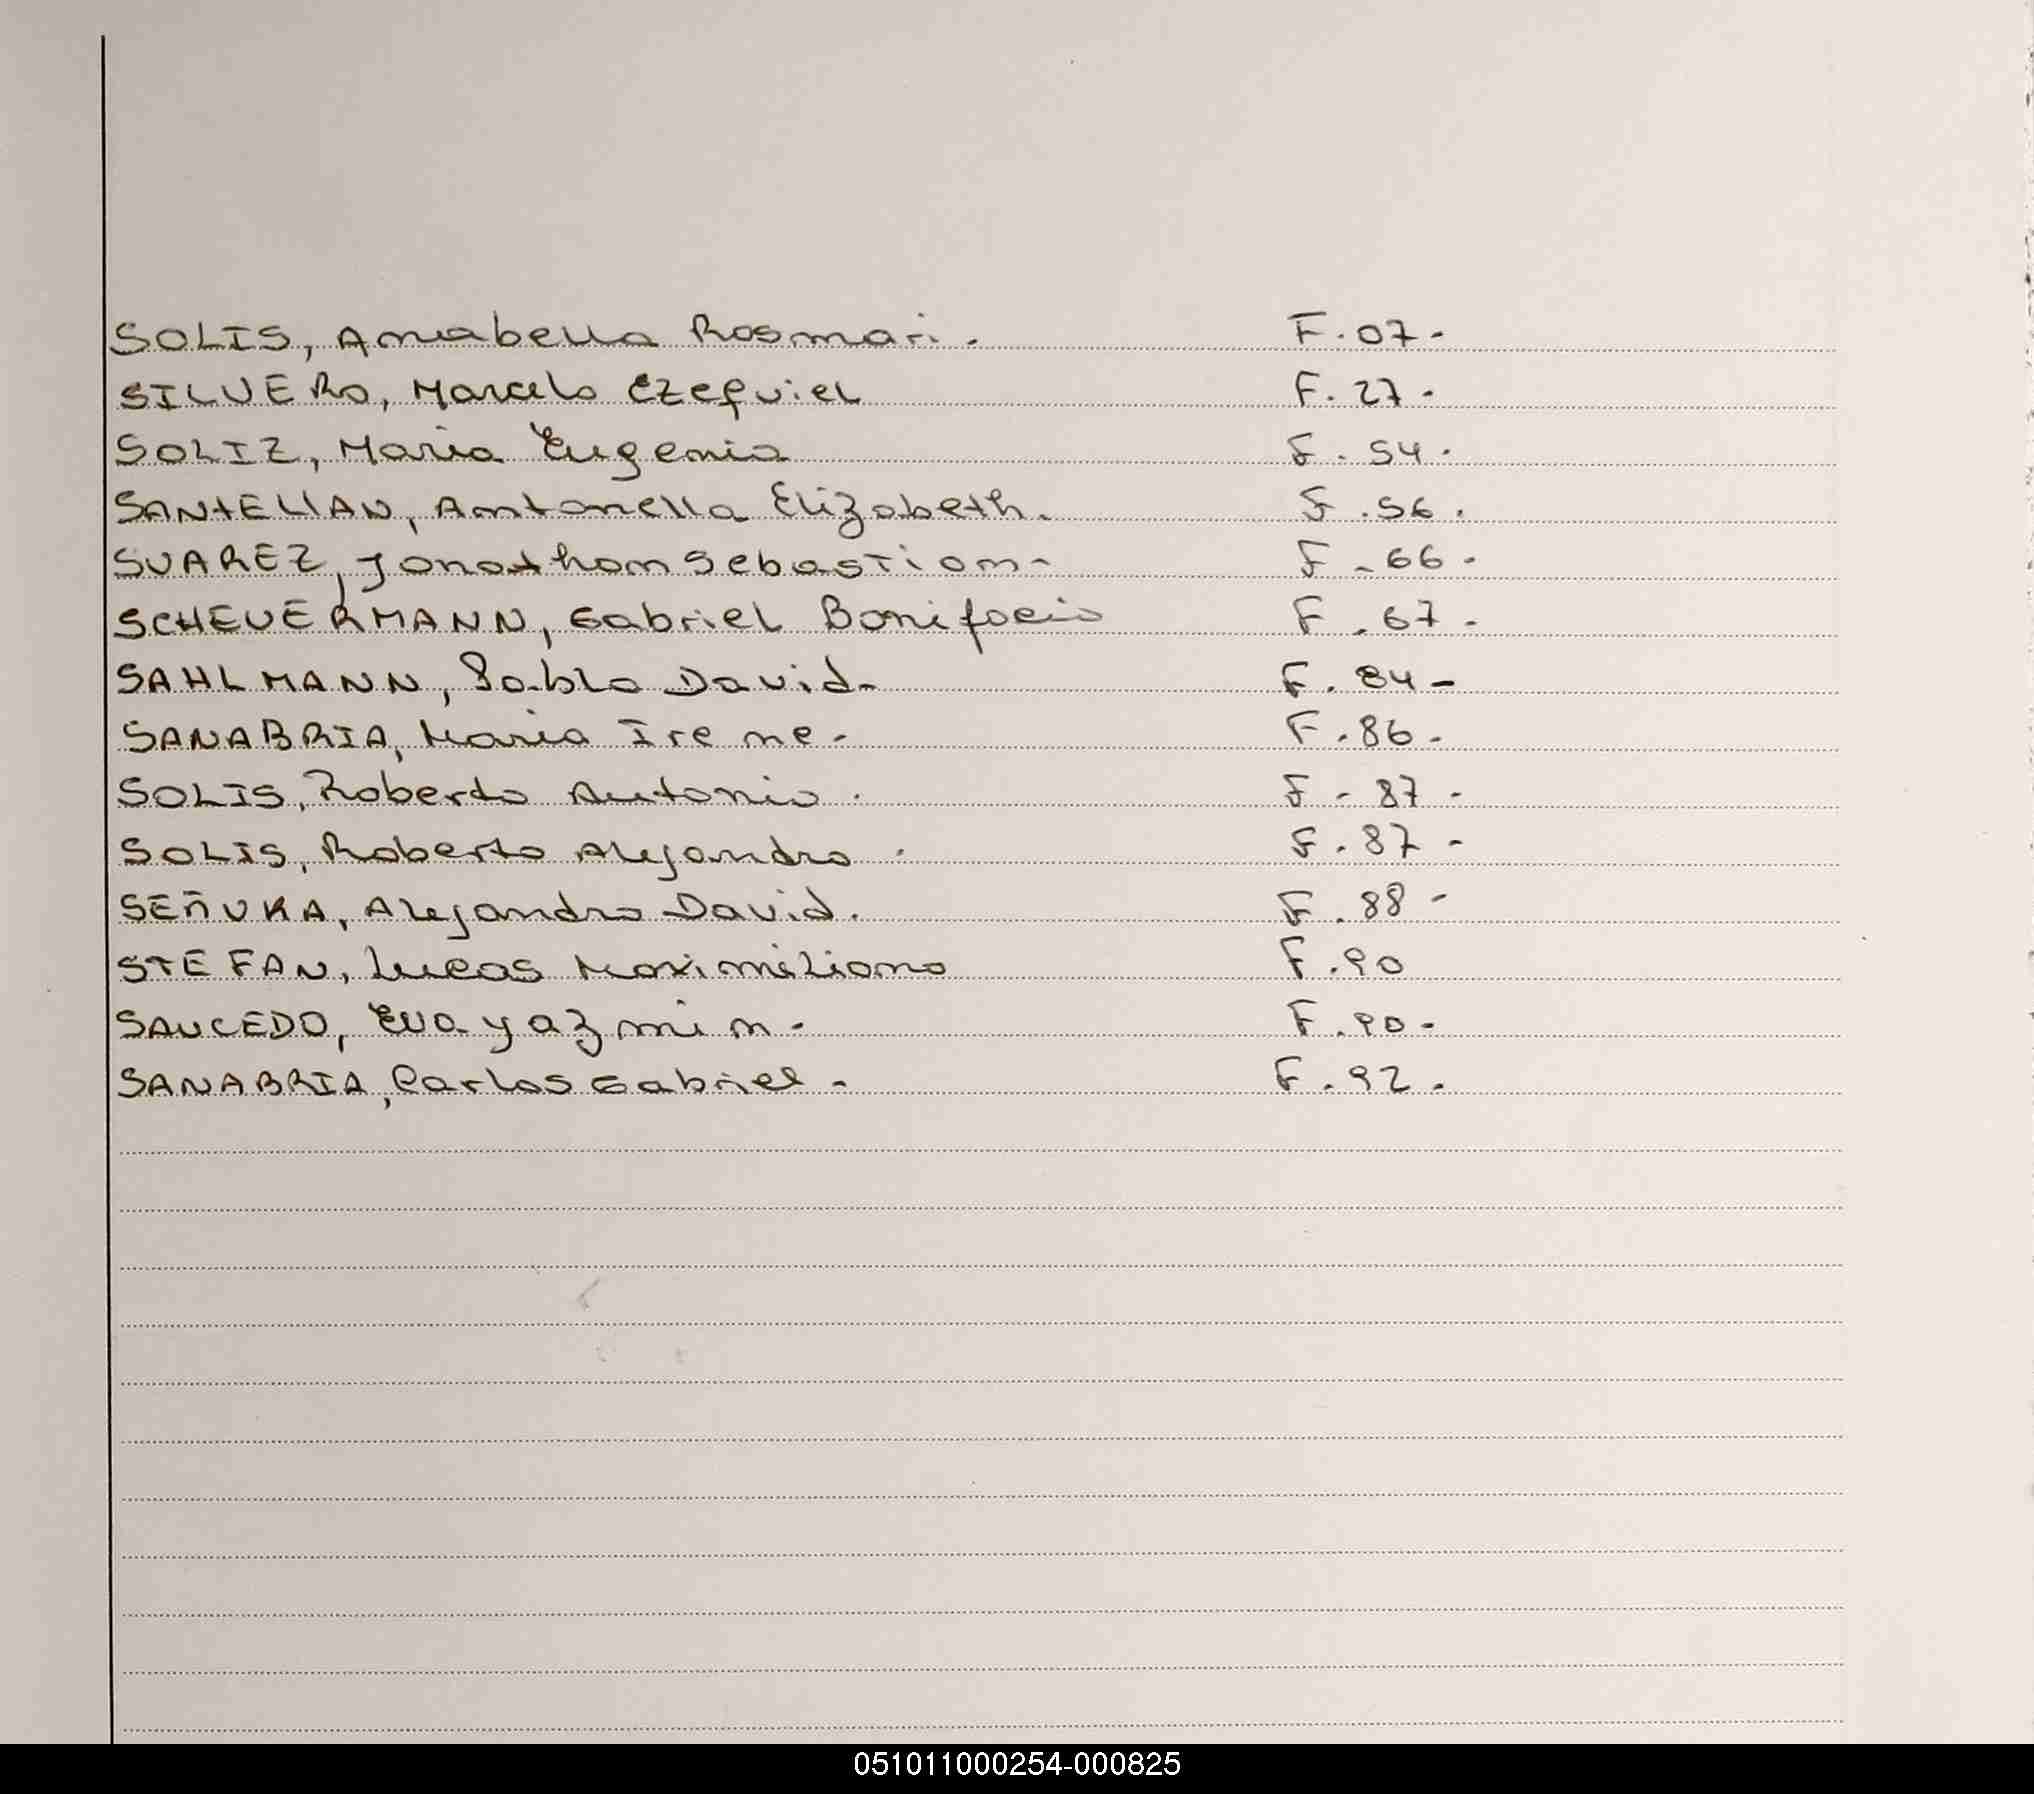 SOLIS, Anabella Rosmari. F. 07.-
SILVERO, Marcelo Ezequiel F. 27.-
SOLIZ, Maria Eugenia F. 54.
SANTELLAN, Antonella Elizabeth. F. 56.
SUAREZ, Jonathan Sebastian- F. 66-
SCHEUERMANN, Gabriel Bonifacio F. 67-
SAHLMANN, Pablo David- F. 84-
SANABRIA, Maria Irene- F. 86-
SOLIS, Roberto Antonio. F- 87-
SOLIS, Roberto Alejandro. F. 87-
SEÑUKA, Alejandro David. F. 88-
STEFAN, Lucas Maximiliano F. 90
SAUCEDO, Eva yazmin- F. 90-
SANABRIA, Carlos Gabriel- F. 92.
051011000254-000825